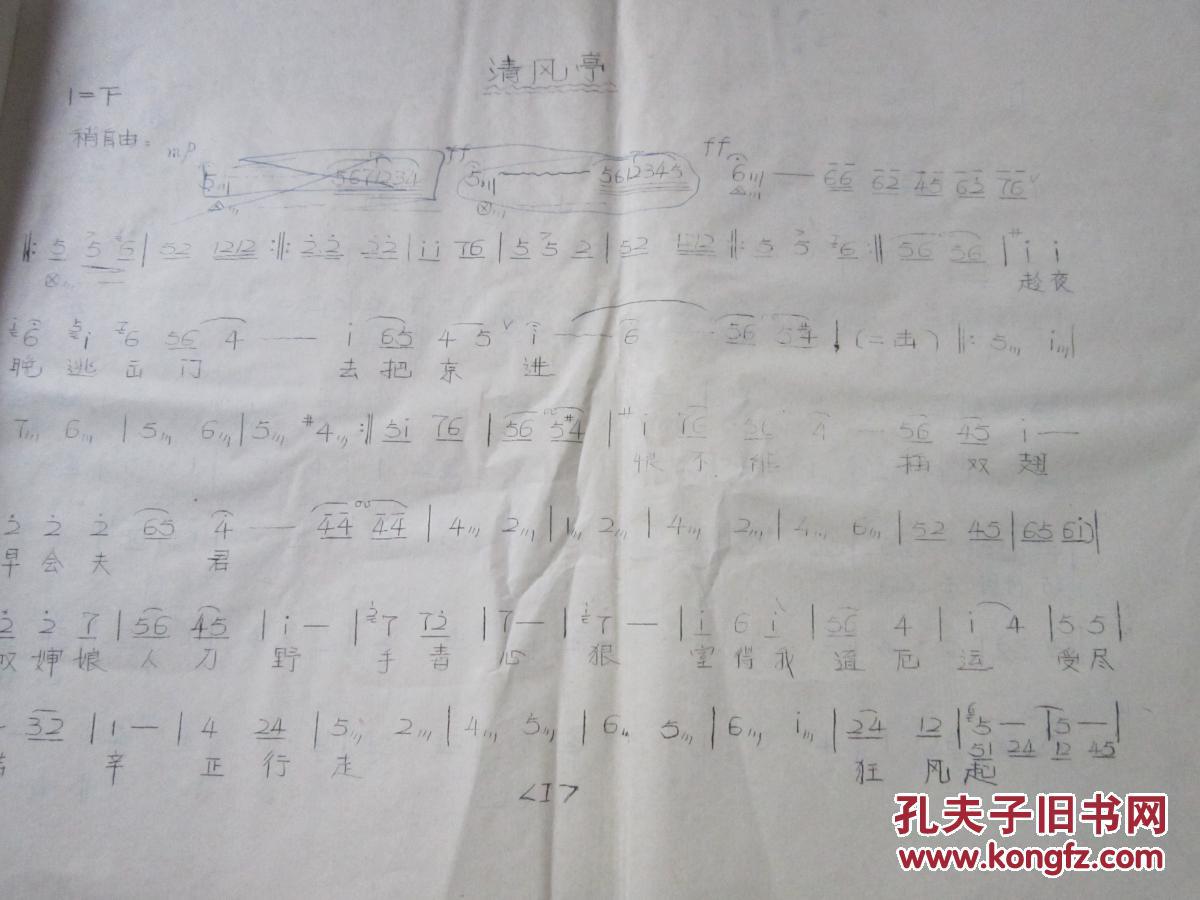 清风亭
1=下
稍自由。
mp 5 5671234 ff 5 5612345 ff 6 — 66 62 45 65 76
‖: 5 5 5 | 52 1212 :‖: 22 22 | ii 76 | 5 5 2 | 52 1212 ‖: 5 5 6 :‖ 56 56 | # i i
趁夜
6 i 6 56 4 — i 65 4 5 i — 6 56 5#4 (二击) ‖: 5 i |
晚 逃 出 门 去 把 京 进
7 6 | 5 6 | 5 #4 :‖ 5i 76 | 56 5#4 | # i 76 56 4 — 56 45 i —
恨 不 能 插 双 翅
2 2 2 65 4 — 44 44 | 4 2 | 1 2 | 4 2 | 4 6 | 52 45 | 65 6i |
早 会 夫 君
2 2 7 | 56 45 | i — | 7 72 | 7 — | 7 — | i 6 i | 56 4 | i 4 | 5 5 |
婶 娘 人 刀 野 手 毒 心 狠 害 得 我 遭 厄 运 受 尽
32 | 1 — | 4 24 | 5 2 | 4 5 | 6 5 | 6 i | 24 12 | 5 — 5 — |
51 24 12 45
辛 正 行 走 狂 风 起
<1>
孔夫子旧书网
www.kongfz.com